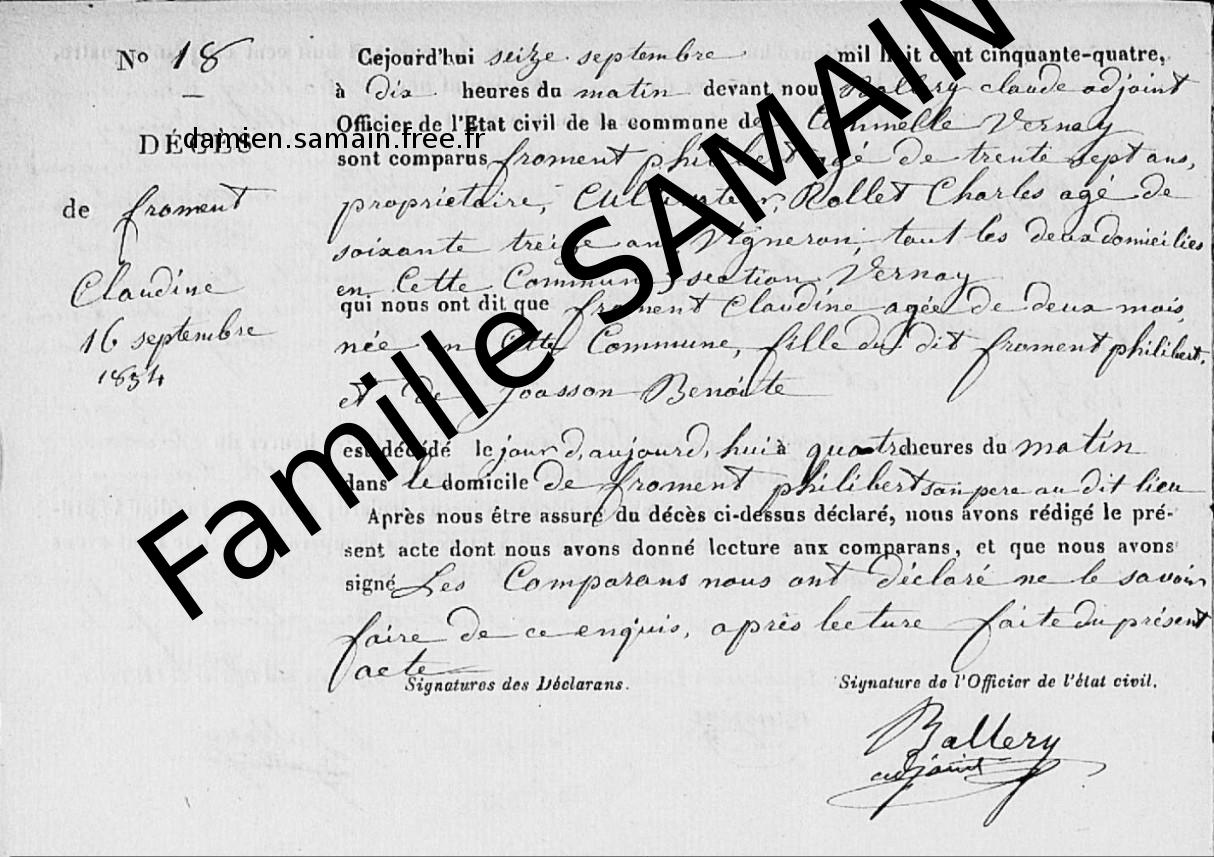 No 18
DÉCÈS
de froment
Claudine
16 septembre
1854
Cejourd'hui seize septembre mil huit cent cinquante-quatre,
à dix heures du matin devant nous Ballery claude adjoint
Officier de l'Etat civil de la commune de Commelle Vernay
sont comparus froment philibert agé de trente sept ans,
propriétaire, Cultivateur, Rollet Charles agé de
soixante treize ans Vigneron, tout les deux domiciliés
en Cette Commune section Vernay
qui nous ont dit que froment Claudine agée de deux mois
née en Cette Commune, fille du dit froment philibert,
et de Joasson Benoite
est décédé le jour d, aujourd, hui à quatre heures du matin
dans le domicile de froment philibert son pere au dit lieu
Après nous être assuré du décès ci-dessus déclaré, nous avons rédigé le pré-
sent acte dont nous avons donné lecture aux comparans, et que nous avons
signé Les Comparans nous ont déclaré ne le savoir
faire de ce enquis, après lecture faite du présent
acte
Signatures des Déclarans.
Signature de l'Officier de l'état civil.
Ballery
adjoint
damien.samain.free.fr
Famille SAMAIN